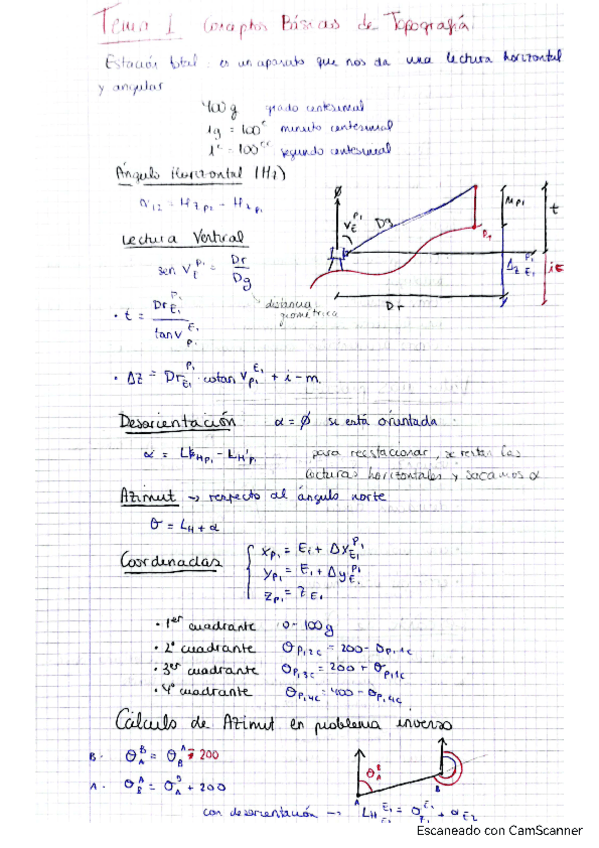 Tema 1 Conceptos Básicos de Topografía.
Estación total: es un aparato que nos da una lectura horizontal
y angular
400g grado centesimal
1g = 100^c minuto centesimal
1^c = 100^cc segundo centesimal
Ángulo Horizontal (Hz)
Lectura Vertical
sen V_E^P1 = Dr / Dg
distancia
geométrica
V_E^P1 Dg
P1
mP1
t
ΔZ_E1^P1
iE
Dr
· t = Dr_E1^P1 / tan V_P1^E1
· ΔZ = Dr_E1^P1 · cotan V_P1^E1 + i - m.
Desorientación α = Ø si está orientada
para reestacionar, se restan las
lecturas horizontales y sacamos α
Azimut → respecto al ángulo norte
θ = L_H + α
Coordenadas
X_P1 = E_1 + ΔX_E1^P1
Y_P1 = E_1 + ΔY_E1^P1
Z_P1 = Z_E1
· 1er cuadrante 0 - 100g
· 2º cuadrante θ_P,2c = 200 - θ_P,1c
· 3er cuadrante θ_P,3c = 200 + θ_P,1c
· 4º cuadrante θ_P,4c = 400 - θ_P,4c
Cálculo de Azimut en problema inverso
B · θ_A^B = θ_B^A ∓ 200
A · θ_B^A = θ_A^B + 200
θ_A^B
A
B
con desorientación →
Escaneado con CamScanner